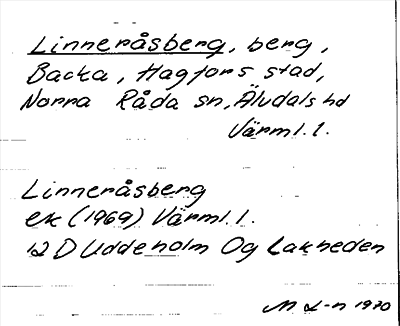 Linneråsberg, berg,
Backa, Hagfors stad,
Norra Råda sn, Älvdals hd
Värml. l.
Linneråsberg
ek (1969) Värml. l.
12 D Uddeholm Og Lakheden
M L-n 1970